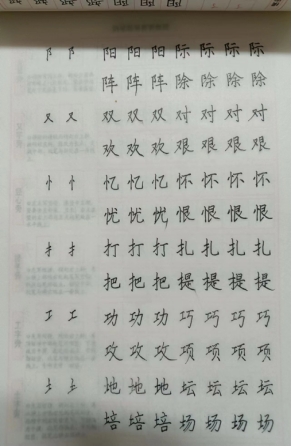 阝 阝 阳 阳 阳 际 际 际 际
阵 阵 阵 除 除 除 除
又 又 双 双 双 对 对 对 对
欢 欢 欢 艰 艰 艰 艰
忄 忄 忆 忆 忆 怀 怀 怀 怀
忧 忧 忧 恨 恨 恨 恨
扌 扌 打 打 打 扎 扎 扎 扎
把 把 把 提 提 提 提
工 工 功 功 功 巧 巧 巧 巧
攻 攻 攻 项 项 项 项
土 土 地 地 地 坛 坛 坛 坛
培 培 培 场 场 场 场